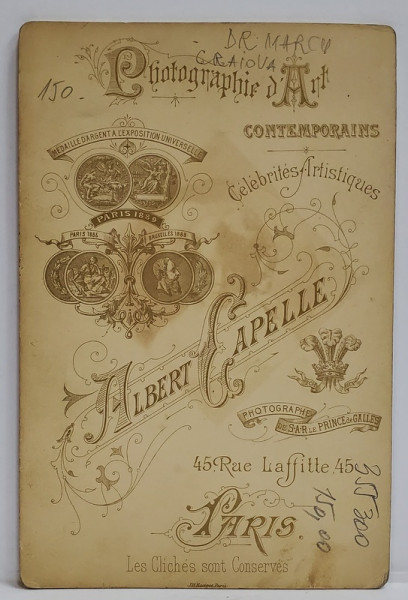 DR. MARCU
CRAIOVA
150.-
Photographie d'Art
CONTEMPORAINS
Célébrités Artistiques
MÉDAILLE D'ARGENT A L'EXPOSITION UNIVERSELLE
PARIS 1889
PARIS 1886
BRUXELLES 1888
ALBERT CAPELLE
PHOTOGRAPHE
DE S.A.R. LE PRINCE de GALLES
45 Rue Laffitte 45
PARIS.
355 300
150,00
Les Clichés sont Conservés